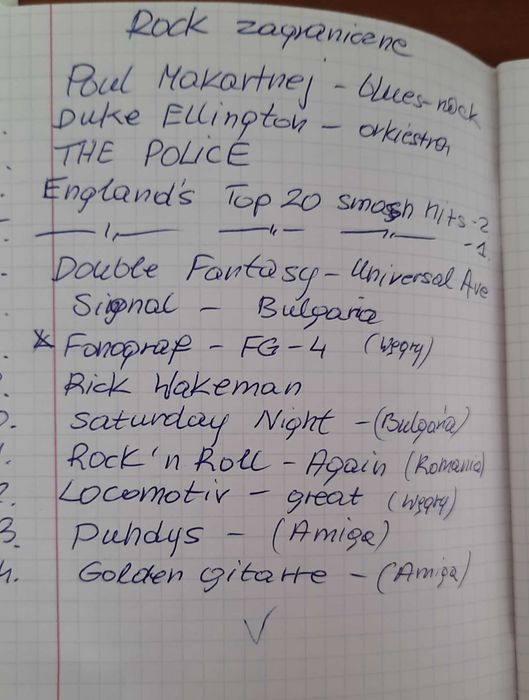 Rock zagraniczne
Poul Makartnej - blues-rock
Duke Ellington - orkiestra
THE POLICE
England's Top 20 smash hits-2
—"— —"— —"— -1.
Double Fantasy - Universal Ave
Signal - Bulgaria
x Fonograf - FG-4 (Węgry)
Rick Wakeman
Saturday Night - (Bulgaria)
Rock'n Roll - Again (Romania)
Locomotiv - great (Węgry)
3. Puhdys - (Amiga)
4. Golden gitarre - (Amiga)
V